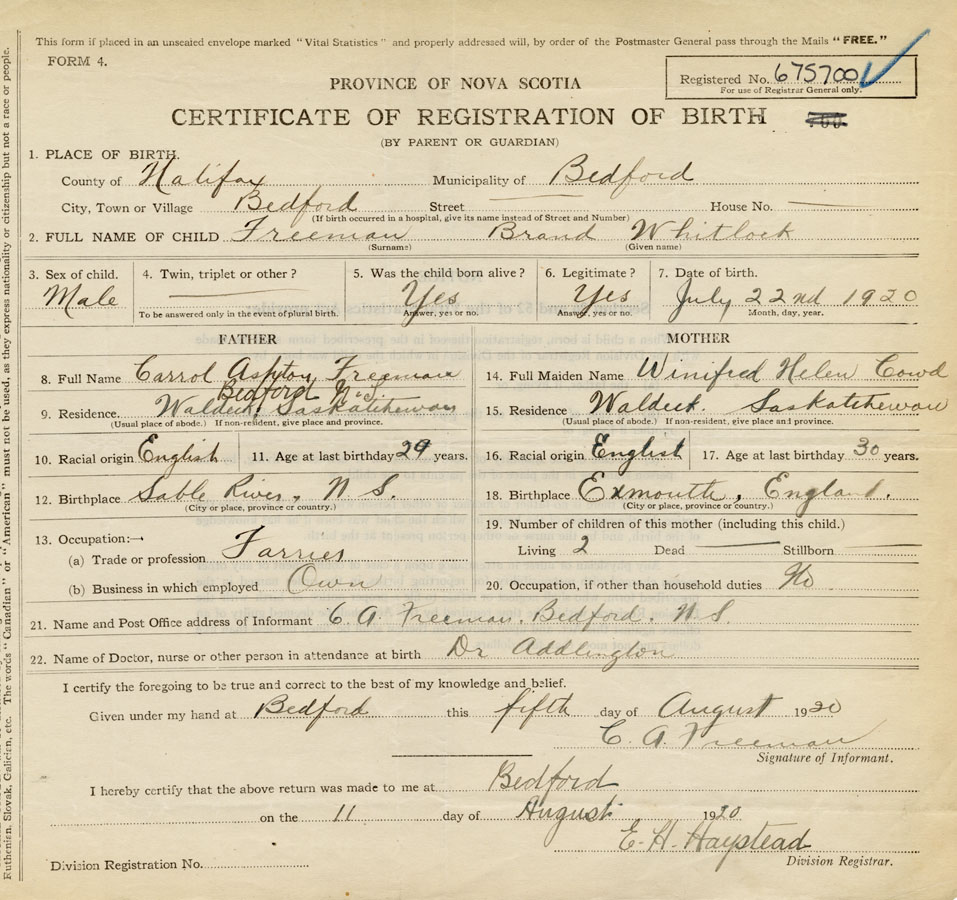 This form if placed in an unsealed envelope marked "Vital Statistics" and properly addressed will, by order of the Postmaster General pass through the Mails "FREE."
FORM 4.
Registered No. 675700
For use of Registrar General only.
PROVINCE OF NOVA SCOTIA
CERTIFICATE OF REGISTRATION OF BIRTH
700
(BY PARENT OR GUARDIAN)
1. PLACE OF BIRTH.
County of Halifax Municipality of Bedford
City, Town or Village Bedford Street House No.
(If birth occurred in a hospital, give its name instead of Street and Number)
2. FULL NAME OF CHILD Freeman Brand Whitlock
(Surname) (Given name)
3. Sex of child. 4. Twin, triplet or other? 5. Was the child born alive? 6. Legitimate? 7. Date of birth.
Male Yes Yes July 22nd 1920
To be answered only in the event of plural birth. Answer, yes or no. Answer, yes or no. Month, day, year.
FATHER MOTHER
8. Full Name Carrol Ashton Freeman 14. Full Maiden Name Winifred Helen Cowd
Bedford N.S.
9. Residence. Waldeck, Saskatchewan 15. Residence Waldeck. Saskatchewan
(Usual place of abode.) If non-resident, give place and province. (Usual place of abode.) If non-resident, give place and province.
10. Racial origin English 11. Age at last birthday 29 years. 16. Racial origin English 17. Age at last birthday 30 years.
12. Birthplace Sable River, N S. 18. Birthplace Exmouth, England.
(City or place, province or country.) (City or place, province or country.)
13. Occupation:— 19. Number of children of this mother (including this child.)
(a) Trade or profession Farrier Living 2 Dead Stillborn
(b) Business in which employed Own 20. Occupation, if other than household duties No
21. Name and Post Office address of Informant C. A. Freeman, Bedford. N. S.
22. Name of Doctor, nurse or other person in attendance at birth Dr Addlington
I certify the foregoing to be true and correct to the best of my knowledge and belief.
Given under my hand at Bedford this fifth day of August 1920
C. A. Freeman
Signature of Informant.
I hereby certify that the above return was made to me at Bedford
on the 11 day of August 1920
E. H. Haystead
Division Registrar.
Division Registration No.
Ruthenian, Slovak, Galician, etc. The words "Canadian" or "American" must not be used, as they express nationality or citizenship but not a race or people.